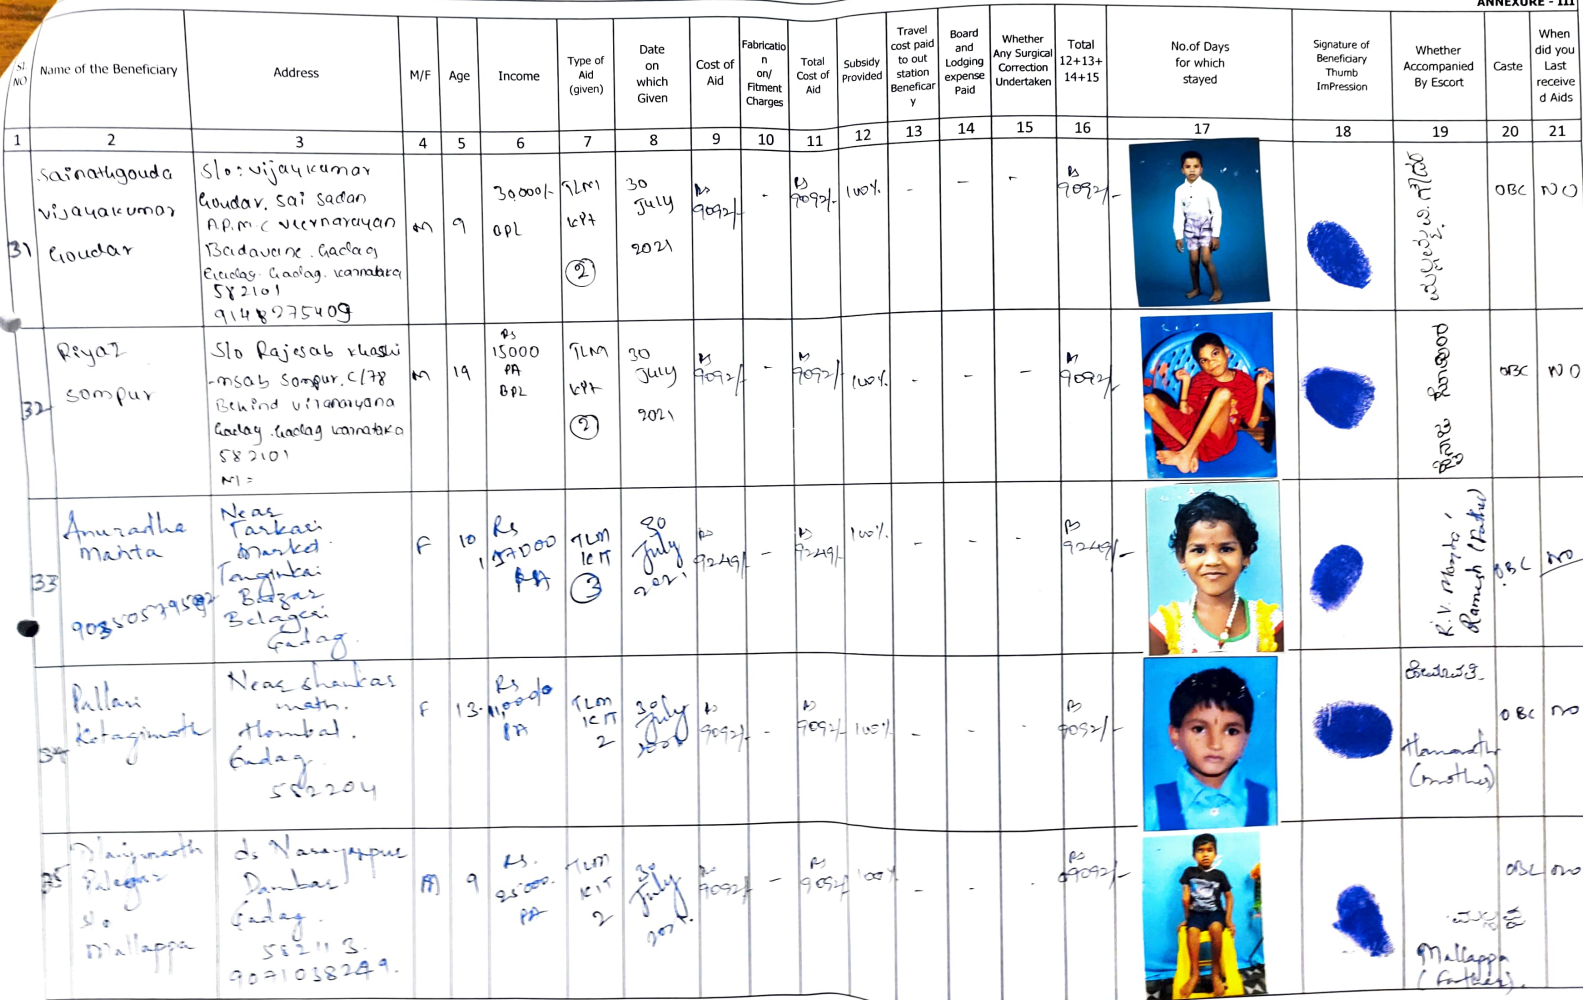 ANNEXURE - III
Sl. NO
Name of the Beneficiary
Address
M/F
Age
Income
Type of
Aid
(given)
Date
on
which
Given
Cost of
Aid
Fabricatio
n
on/
Fitment
Charges
Total
Cost of
Aid
Subsidy
Provided
Travel
cost paid
to out
station
Beneficar
y
Board
and
Lodging
expense
Paid
Whether
Any Surgical
Correction
Undertaken
Total
12+13+
14+15
No.of Days
for which
stayed
Signature of
Beneficiary
Thumb
ImPression
Whether
Accompanied
By Escort
Caste
When
did you
Last
receive
d Aids
1 2 3 4 5 6 7 8 9 10 11 12 13 14 15 16 17 18 19 20 21
31
Sainathgouda
Vijayakumar
Goudar
S/o: Vijaykumar
Goudar, Sai Sadan
A.P.M.C Veernarayan
Gadag. Gadag. Karnataka
582101
9148275409
M
9
30,000/-
BPL
TLM
KIT
2
30
July
2021
Rs
9092/-
-
Rs
9092/-
100%
-
-
-
Rs
9092/-
OBC
NO
32
Riyaz
Sompur
S/o Rajesab Khashi
-msab Sompur. C/78
Behind Viranarayana
Gadag. Gadag Karnataka
582101
M =
M
19
Rs
15000
PA
BPL
TLM
KIT
2
30
July
2021
Rs
9092/-
-
Rs
9092/-
100%
-
-
-
Rs
9092/-
OBC
NO
33
Anuradha
Manta
Near
Tarkari
Market
Tenginkai
Bazar
Betageri
Gadag.
F
10
Rs
PA
TLM
KIT
3
30
July
2021
Rs
9249/-
-
Rs
9249/-
100%
-
-
-
Rs
9249/-
R.V. Manta
Ramesh (Father)
OBC
NO
34
Pallavi
Kotagimath
Near Shankar
math.
Hombal.
Gadag.
582204
F
13
Rs
PA
TLM
KIT
2
30
July
2021
Rs
9092/-
-
Rs
9092/-
100%
-
-
-
Rs
9092/-
ಹೇಮಾವತಿ
(mother)
OBC
NO
35
Manjunath
Palegar
S/o
Mallappa
Dambar
Gadag.
582113.
9071038249.
M
9
Rs.
25000.
PA
TLM
KIT
2
30
July
2021.
Rs
9092/-
-
Rs
9092/-
100%
-
-
-
Rs
9092/-
ಮಲ್ಲಪ್ಪ
Mallappa
(Father).
OBC
NO